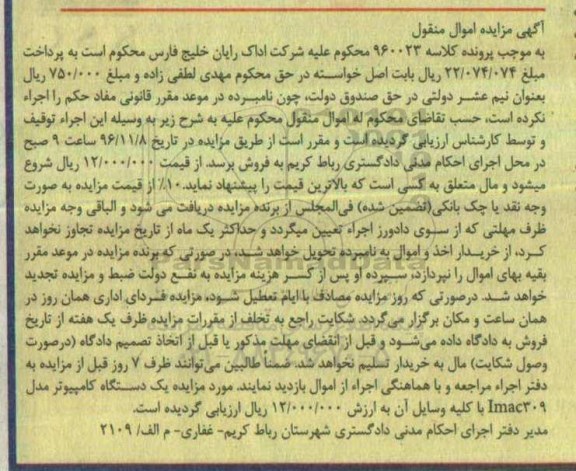 آگهی مزایده اموال منقول
به موجب پرونده کلاسه ۹۶۰۰۲۳ محکوم علیه شرکت اداک رایان خلیج فارس محکوم است به پرداخت
مبلغ ۲۲/۰۷۴/۰۷۴ ریال بابت اصل خواسته در حق محکوم مهدی لطفی زاده و مبلغ ۷۵۰/۰۰۰ ریال
بعنوان نیم عشر دولتی در حق صندوق دولت، چون نامبرده در موعد مقرر قانونی مفاد حکم را اجراء
نکرده است، حسب تقاضای محکوم له اموال منقول محکوم علیه به شرح زیر به وسیله این اجراء توقیف
و توسط کارشناس ارزیابی گردیده است و مقرر است از طریق مزایده در تاریخ ۹۶/۱۱/۸ ساعت ۹ صبح
در محل اجرای احکام مدنی دادگستری رباط کریم به فروش برسد. از قیمت ۱۲/۰۰۰/۰۰۰ ریال شروع
میشود و مال متعلق به کسی است که بالاترین قیمت را پیشنهاد نماید. ۱۰٪ از قیمت مزایده به صورت
وجه نقد یا چک بانکی(تضمین شده) فی‌المجلس از برنده مزایده دریافت می شود و الباقی وجه مزایده
ظرف مهلتی که از سوی دادورز اجراء تعیین میگردد و حداکثر یک ماه از تاریخ مزایده تجاوز نخواهد
کرد، از خریدار اخذ و اموال به نامبرده تحویل خواهد شد. درصورتی که برنده مزایده در موعد مقرر
بقیه بهای اموال را نپردازد، سپرده او پس از کسر هزینه مزایده به نفع دولت ضبط و مزایده تجدید
خواهد شد. درصورتی که روز مزایده مصادف با ایام تعطیل شود، مزایده فردای اداری همان روز در
همان ساعت و مکان برگزار می‌گردد. شکایت راجع به تخلف از مقررات مزایده ظرف یک هفته از تاریخ
فروش به دادگاه داده می‌شود و قبل از انقضای مهلت مذکور یا قبل از اتخاذ تصمیم دادگاه (درصورت
وصول شکایت) مال به خریدار تسلیم نخواهد شد. ضمنا طالبین می‌توانند ظرف ۷ روز قبل از مزایده به
دفتر اجراء مراجعه و با هماهنگی اجراء از اموال بازدید نمایند. مورد مزایده یک دستگاه کامپیوتر مدل
Imac۳۰۹ با کلیه وسایل آن به ارزش ۱۲/۰۰۰/۰۰۰ ریال ارزیابی گردیده است.
مدیر دفتر اجرای احکام مدنی دادگستری شهرستان رباط کریم- غفاری- م الف/ ۲۱۰۹